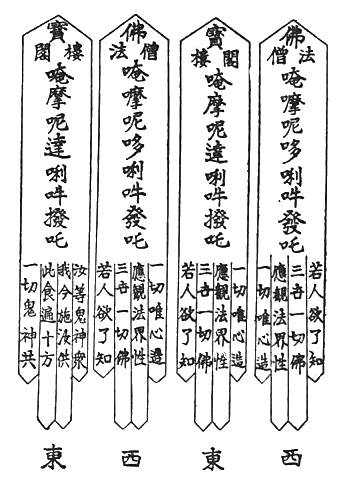 佛
法 僧
唵摩呢哆唎吽發吒
若人欲了知
三吾一切佛
應觀法界性
一切唯心造
西
寶
閣 樓
唵摩呢達唎吽撥吒
一切唯心造
應觀法界性
三吾一切佛
若人欲了知
東
佛
僧 法
唵摩呢哆唎吽發吒
一切唯心造
應觀法界性
三吾一切佛
若人欲了知
西
寶
樓 閣
唵摩呢達唎吽撥吒
汝等鬼神眾
我今施汝供
此食遍十方
一切鬼神共
東